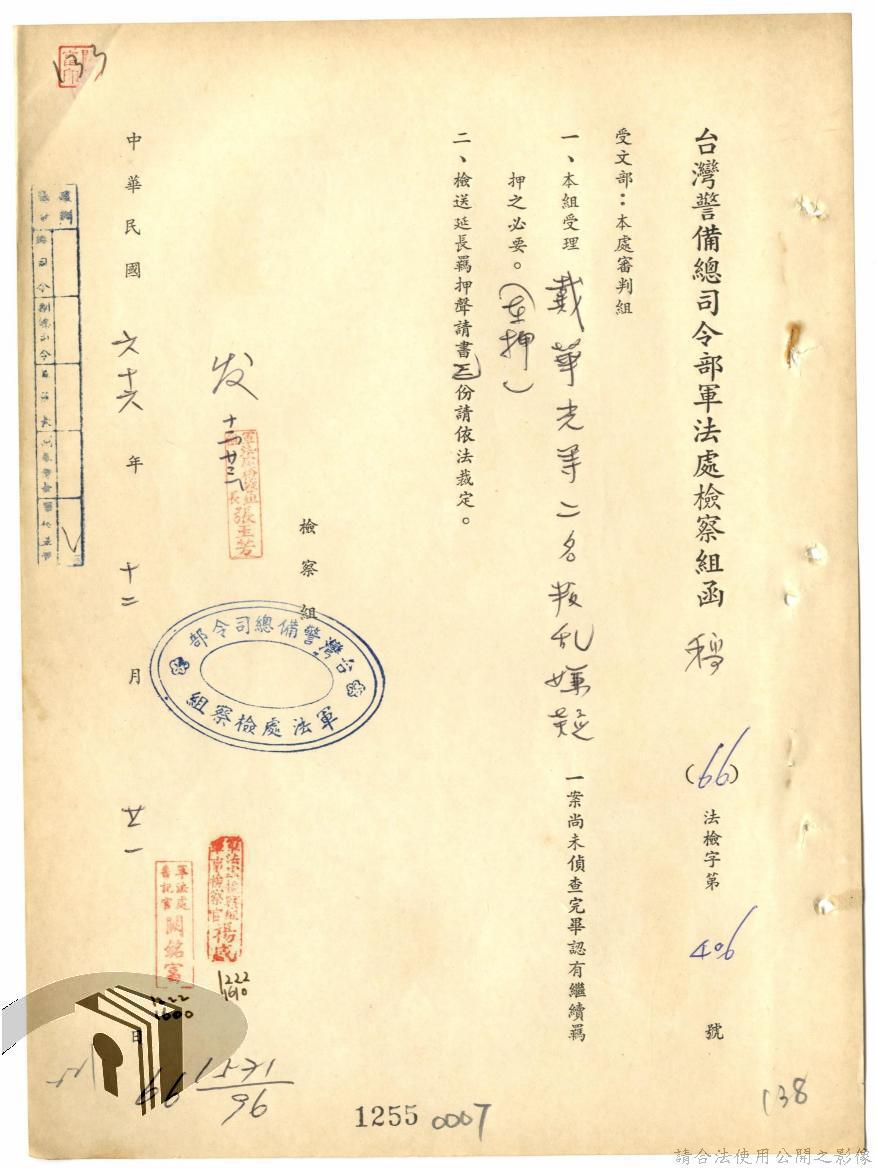 台灣警備總司令部軍法處檢察組函 稿 (66) 法檢字第 406 號
受文部：本處審判組
一、本組受理 戴華光等二名叛乱嫌疑 一案尚未偵查完畢認有繼續羈
押之必要。（在押）
二、檢送延長羈押聲請書三份請依法裁定。
檢察組
台灣警備總司令部
軍法處檢察組
发
十二
廿三
張玉芳
中華民國 六十六 年 十二 月 廿一 日
軍法處檢察組
軍事檢察官
楊威
1222
1610
軍法處
書記官
關銘富
1222
1600
133
66 1571
96
1255 0007
138
請合法使用公開之影像